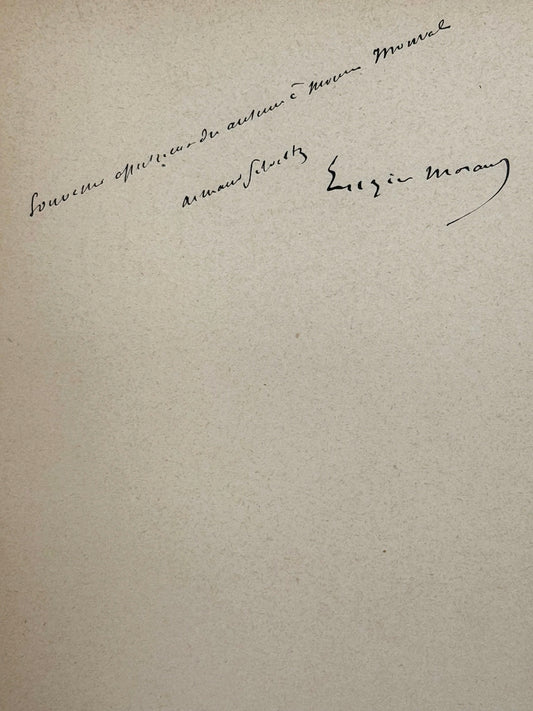 Souvenir affectueux des auteurs à Monval
Armand Silvestre
Eugène Morand